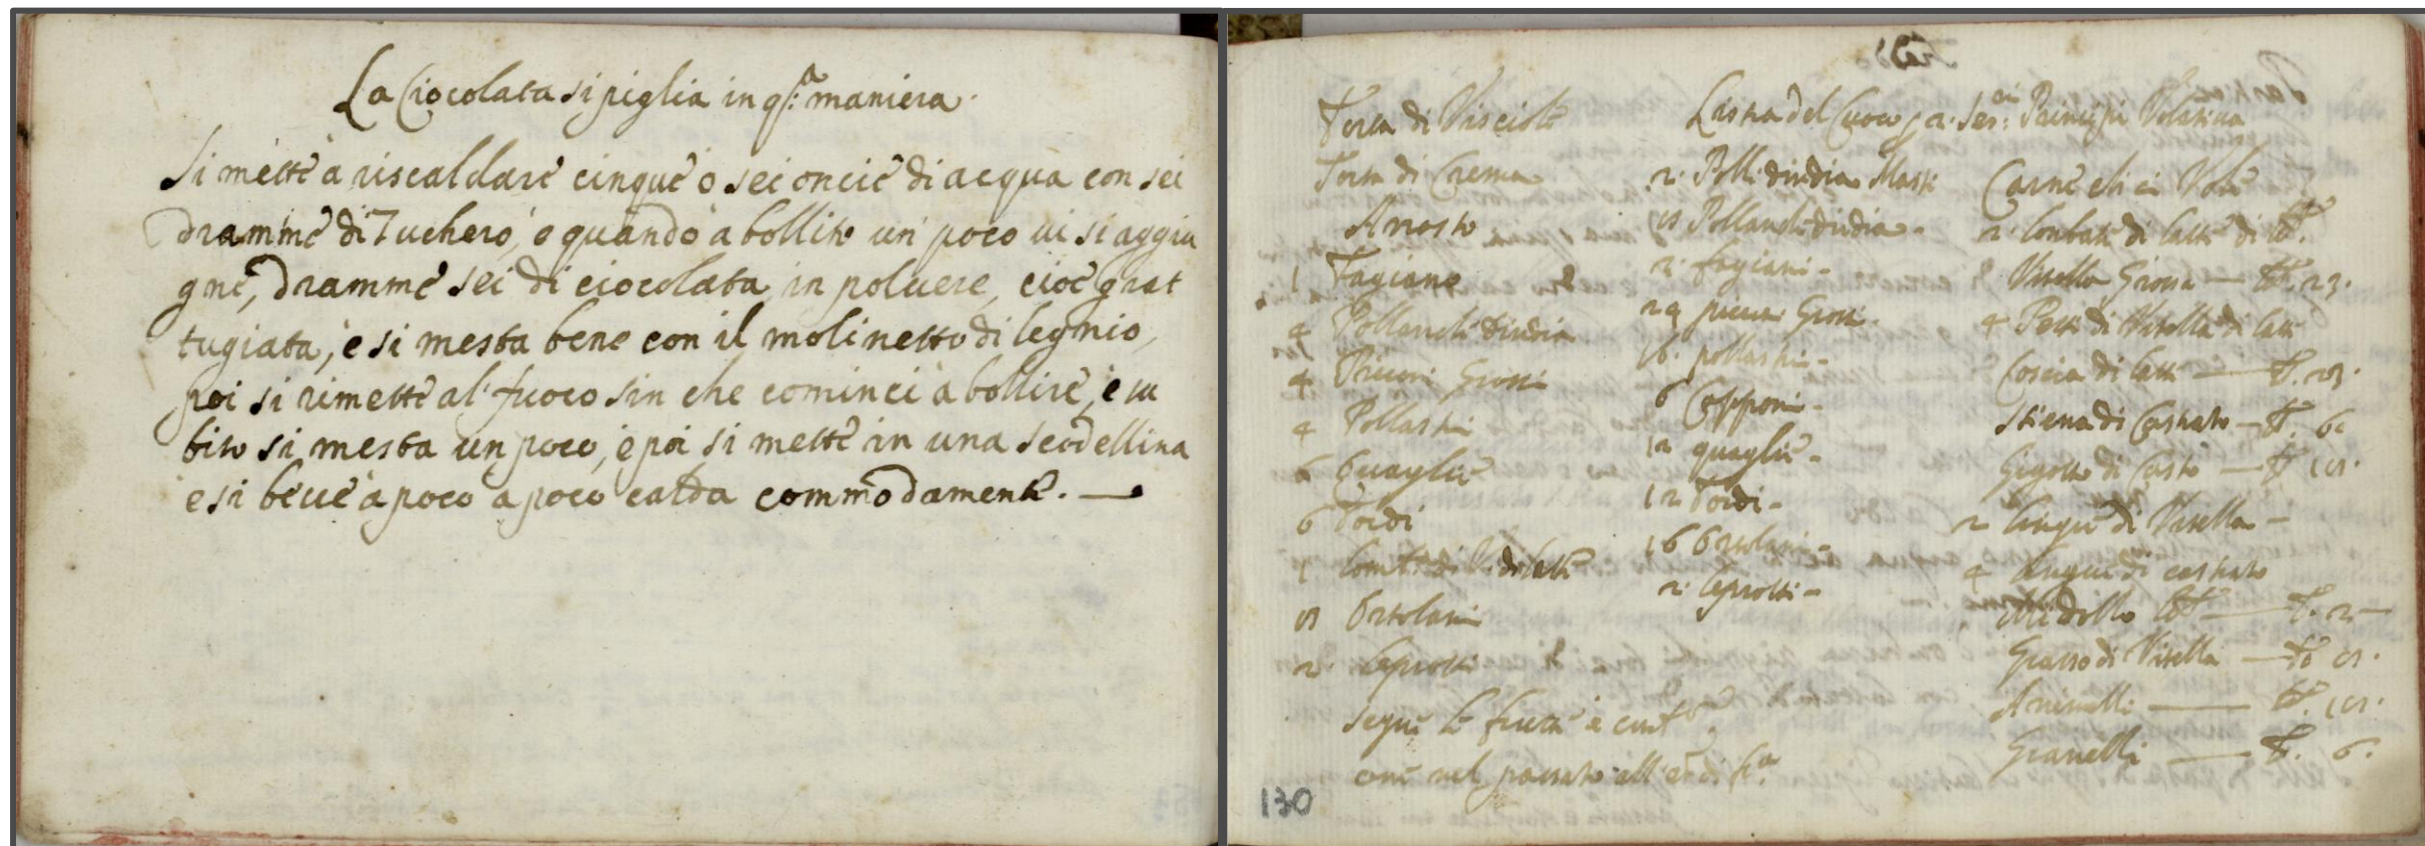 La Ciocolata si piglia in q.ᵃ maniera.
Si mette à riscaldare cinque ò sei oncie di acqua con sei
dramme di Zuchero, e quando à bollito un poco ui si aggiu
gne, dramme sei di ciocolata in poluere, cioè grat
tugiata, e si mesta bene con il molinetto di legnio,
poi si rimette al fuoco sin che cominci à bollire, e su
bito si mesta un poco, e poi si mette in una scodellina
e si beue à poco à poco calda commodamente.
Torta di Visciole
Torta di Crema
Arrosto
1 Fagiano
4 Pollanche dindia
4 Piccioni Grossi
4 Pollastri
6 Quaglie
6 Tordi
1 di latte
Ortolani
2 Leprotti
segue le frutta e
come nel passato
Listra del Cuoco Principi Volatiua
2 Polli dindia
Pollanche dindia
2 fagiani
24 piccioni Grossi
16 pollastri
6 Capponi
12 quaglie
12 Tordi
16 Ortolani
2 Leprotti
Carne
2 lonbate di latte di
Vitella Grossa 23.
4 Petti di Vitella di latte
Coscia di latte
Stiena di Castrato
Gigotto di Casto
2 lingue di Vitella
4 lingue di castrato
Midollo 2
Grasso di Vitella
Animelle
Granelli 6.
130